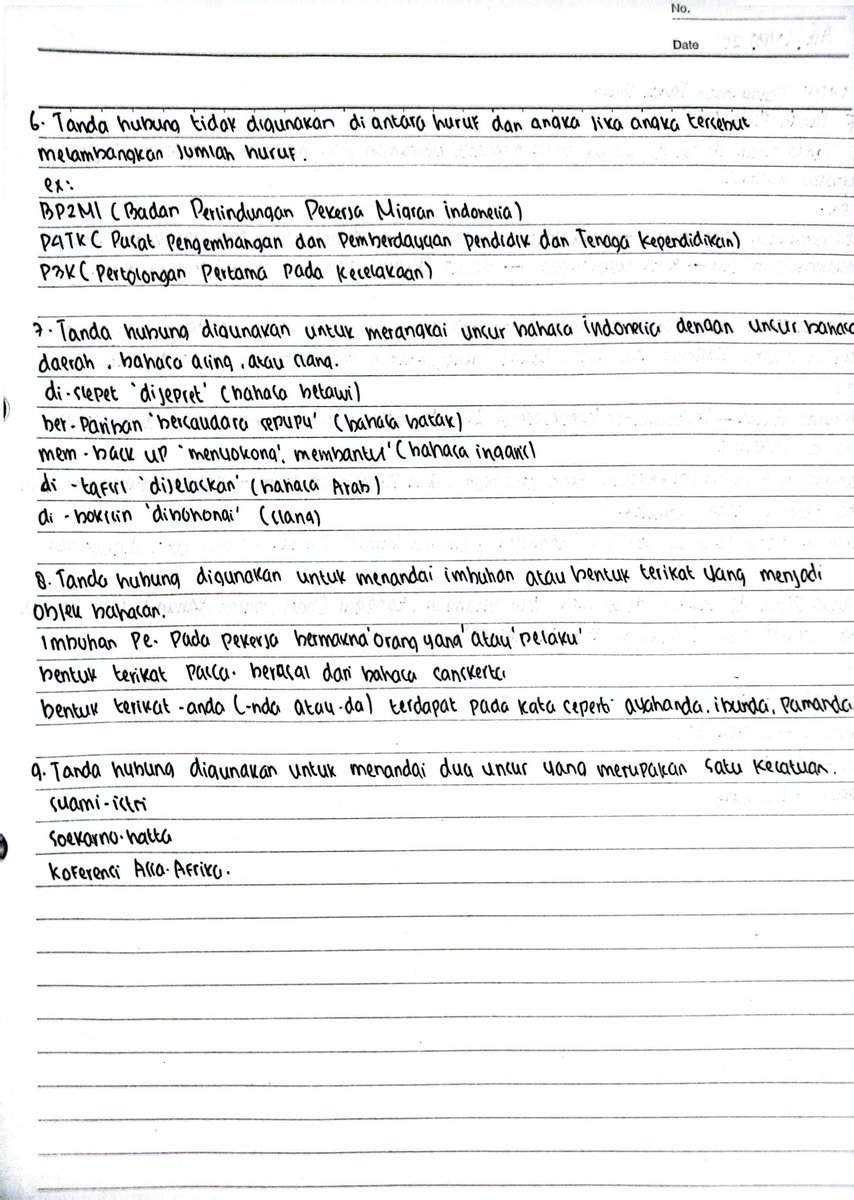 No.
Date
6. Tanda hubung tidak digunakan di antara huruf dan angka jika angka tersebut
melambangkan jumlah huruf.
ex:
BP2MI (Badan Perlindungan Pekerja Migran indonesia)
P4TK ( Pusat Pengembangan dan Pemberdayaan pendidik dan Tenaga Kependidikan)
P3K ( Pertolongan Pertama Pada Kecelakaan)
7. Tanda hubung digunakan untuk merangkai unsur bahasa indonesia dengan unsur bahasa
daerah, bahasa asing, atau slang.
di-slepet 'dijepret' (bahasa betawi)
ber-pariban 'bersaudara sepupu' (bahasa batak)
mem-back up 'menyokong, membantu' (bahasa inggris)
di-tafsil 'dijelaskan' (bahasa Arab)
di-boksiin 'dibohongi' (slang)
8. Tanda hubung digunakan untuk menandai imbuhan atau bentuk terikat yang menjadi
objek bahasan.
Imbuhan Pe- Pada pekerja bermakna 'orang yang' atau 'pelaku'
bentuk terikat pasca- berasal dari bahasa sanskerta
bentuk terikat -anda (-nda atau -da) terdapat pada kata seperti ayahanda, ibunda, Pamanda
9. Tanda hubung digunakan untuk menandai dua unsur yang merupakan satu kesatuan.
suami-istri
soekarno-hatta
koferensi Asia-Afrika.